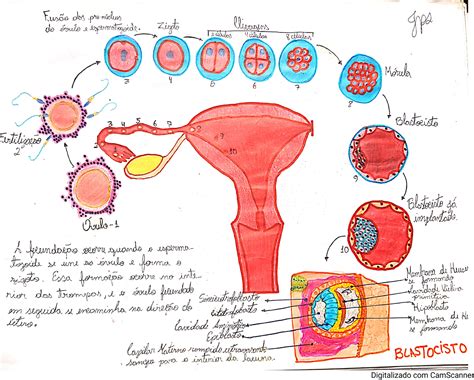 Fusão dos pronúcleos
do óvulo e espermatozoide.
Zigoto
Clivagens
2 células
4 células
8 células
3
4
5
6
7
Mórula
8
Fertilização
2
Óvulo-1
Blastocisto
9
Blastocisto já
implantado.
10
A fecundação ocorre quando o esperma-
tozoide se une ao óvulo e forma o
zigoto. Essa formação ocorre no inte-
rior das trompas, e o óvulo fecundado
em seguida se encaminha na direção do
útero.
Sinciciotrofoblasto
Citotrofoblasto
Cavidade Amniótica
Epiblasto
Capilar Materno rompido extravasando
sangue para o interior da lacuna.
Membrana de Heuser
se formando
Cavidade Vitelina
primitiva
Hipoblasto
Membrana de He
se formando
BLASTOCISTO
Digitalizado com CamScanner